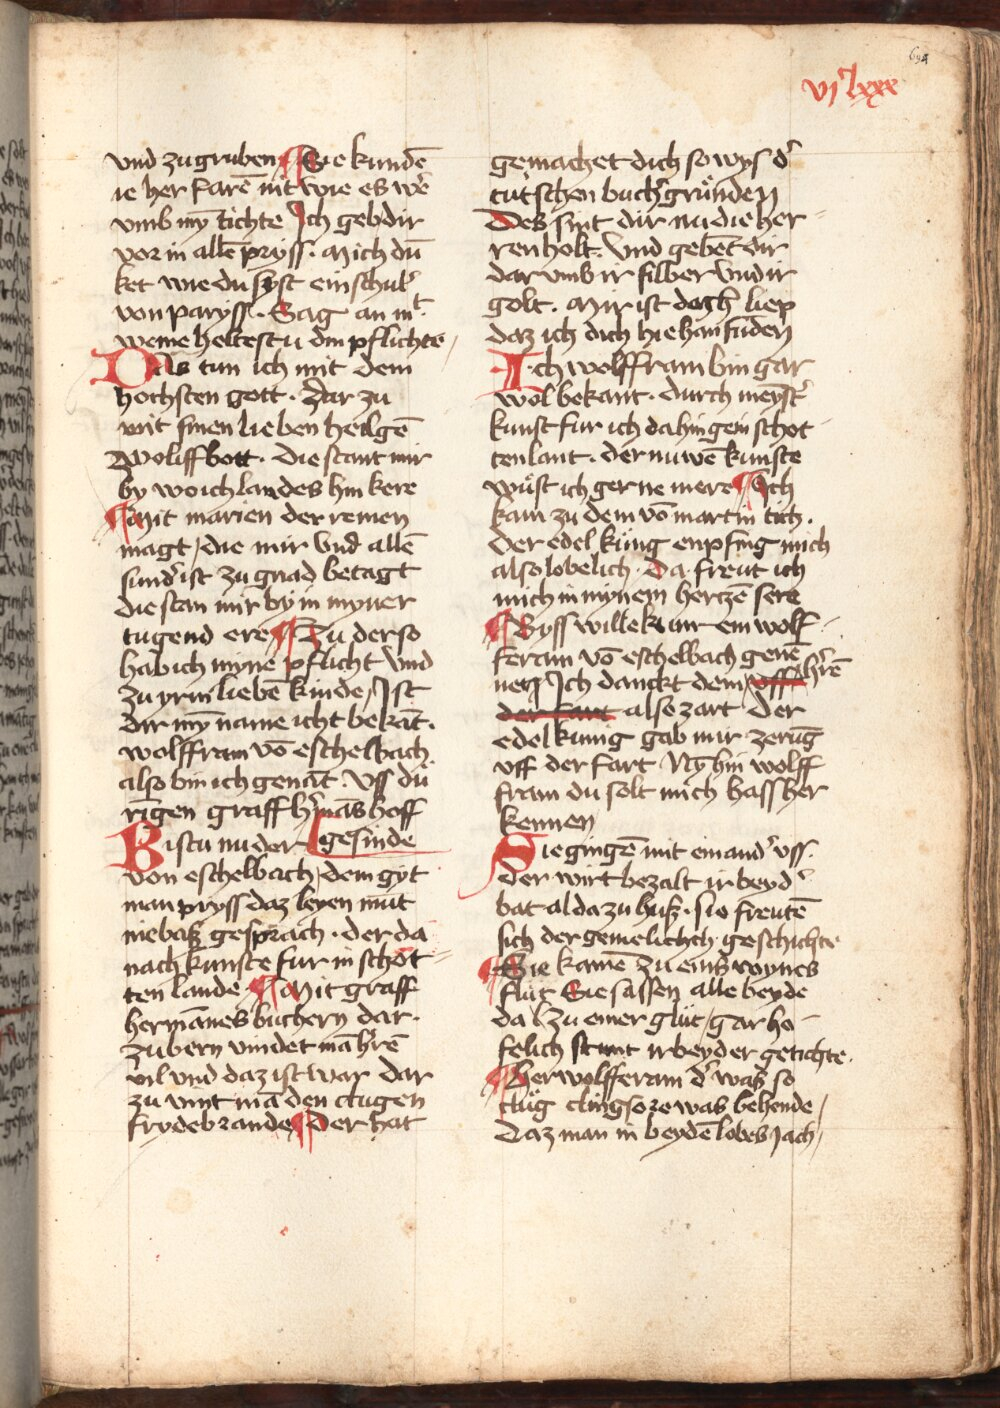 694
vjᶜlxxx
vnd zu gruben ¶ Sie kundē
ie her farē nit wie es wer̄
vmb my̅ tichte Ich geb dir
vor in allē pryss. Mich du̅
ket wie du syst ein schul'
von paryss. Sag an mit
weme heltestu din pflichte
Das tun ich mit dem
hochsten gott. Dar zu
mit sinen lieben heilgē
zwoliffbott. die stant mir
by wo ich landes hin kere
¶ Mit marien der reinen
magt / die mir vnd allē
sund' ist zu gnad betagt
die stan mir by in myner
tugend ere ¶ Zu der so
hab ich myne pflicht vnd
zu yrm liebē kinde / Ist
dir my̅ name icht bekāt.
wolffram vō eschelbach
also bin ich genāt. Vff du̅
rīgen graff h'mās hoff
gesinde
Bistu nu der
von eschelbach / dem gyt
man pryss daz leyen mūt
nie baß gesprach. der da
nach kunste fur in schot
ten lande ¶ Mit graff
hermānes buchern dar.
zubern vindet mā h'rē
vil vnd daz ist war dar
zu vint mā den clugen
frydebrande ¶ Der hat
gemachet dich so wys d'
tutschen buch' gründen
Des sint dir nu die her
ren holt. Vnd gebēt dir
dar vmb ir silber vnd ir
golt. Mir ist doch liep
daz ich dich hie han funden
Ich wolffram bin gar
wol bekant. durch meyst'
kunst fur ich da hin gein schot
ten lant. der nuwē kunste
wüst ich gerne mere ¶ Ich
kam zu dem vō martin tich.
Der edel küng enpfing mich
also lobelich. Da freut ich
mich in mynem hertzē sere
¶ Byss willekumr ein wolf
feram vō eschelbach genē
nen Ich danckt dem vff h'rē
der fart also zart Der
edel kunig gab mir zerūg
vff der fart Nȳ hin wolff
fram du solt mich bass her
kennen
Sie gingē mit einand' vss.
der wirt bezalt ir beyd'
bat alda zu huß. sie freutē
sich der gemelichē geschichte
¶ Sie kamē zu eins wynes
flüt Sie sassen alle beyde
da zu einer glut / gar ho
felich stunt ir beyder getichte.
¶ Her wolfferam d' was so
clug clingsore was behende /
Daz man in beydē lobes jach /